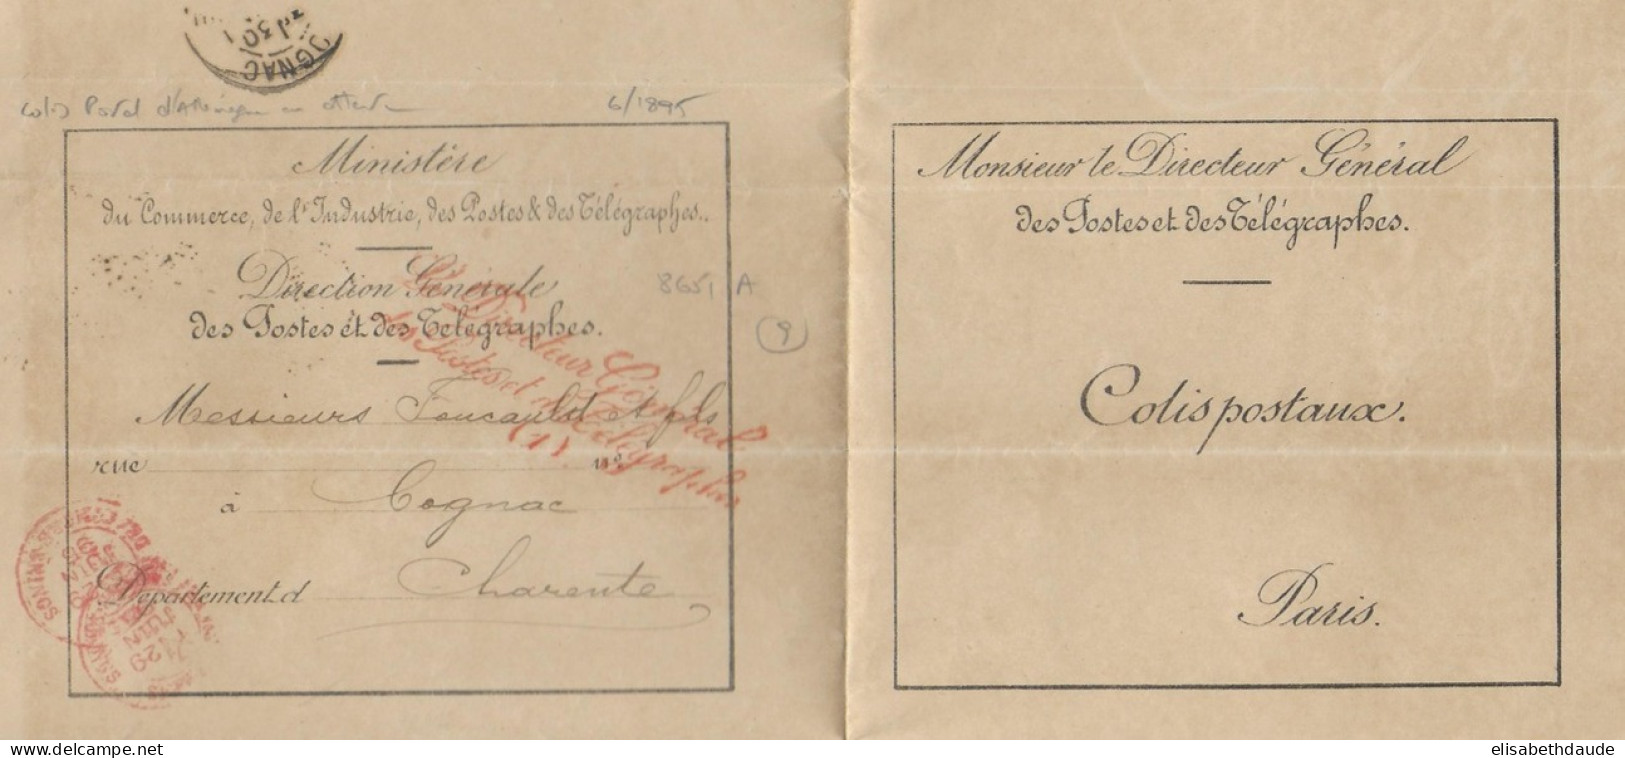 COGNAC
6/1895
Ministère
du Commerce, de l'Industrie, des Postes & des Télégraphes.
Direction Générale
des Postes et des Télégraphes.
8651 A
9
Le Directeur Général
des Postes et des Télégraphes
(1).
Messieurs Foucauld et fils
rue nº
à Cognac
Département d Charente
Monsieur le Directeur Général
des Postes et des Télégraphes.
Colis postaux.
Paris.
delcampe.net
elisabethdaude